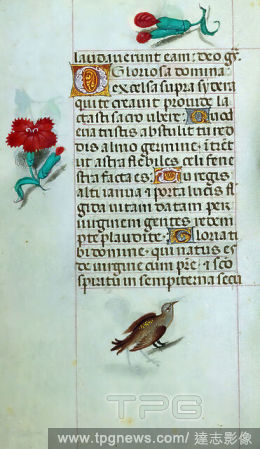 laudaverunt eam: deo gr̃.
O Gloriosa domina:
excelsa supra sydera
qui te creavit provide la
ctasti sacro ubere: Quod
eva tristis abstulit tu red
dis almo germine: ĩtrẽt
ut astra flebiles celi fene
stra facta es: Tu regis
alti ianua et porta lucis fl
gida vitam datam per
virginem gentes redem
pte plaudite: Gloria ti
bi domine, qui natus es
de virgine cum prẽ, et sc̃o
spiritu in sempiterna secu
TPG
www.tpgnews.com / 達志影像